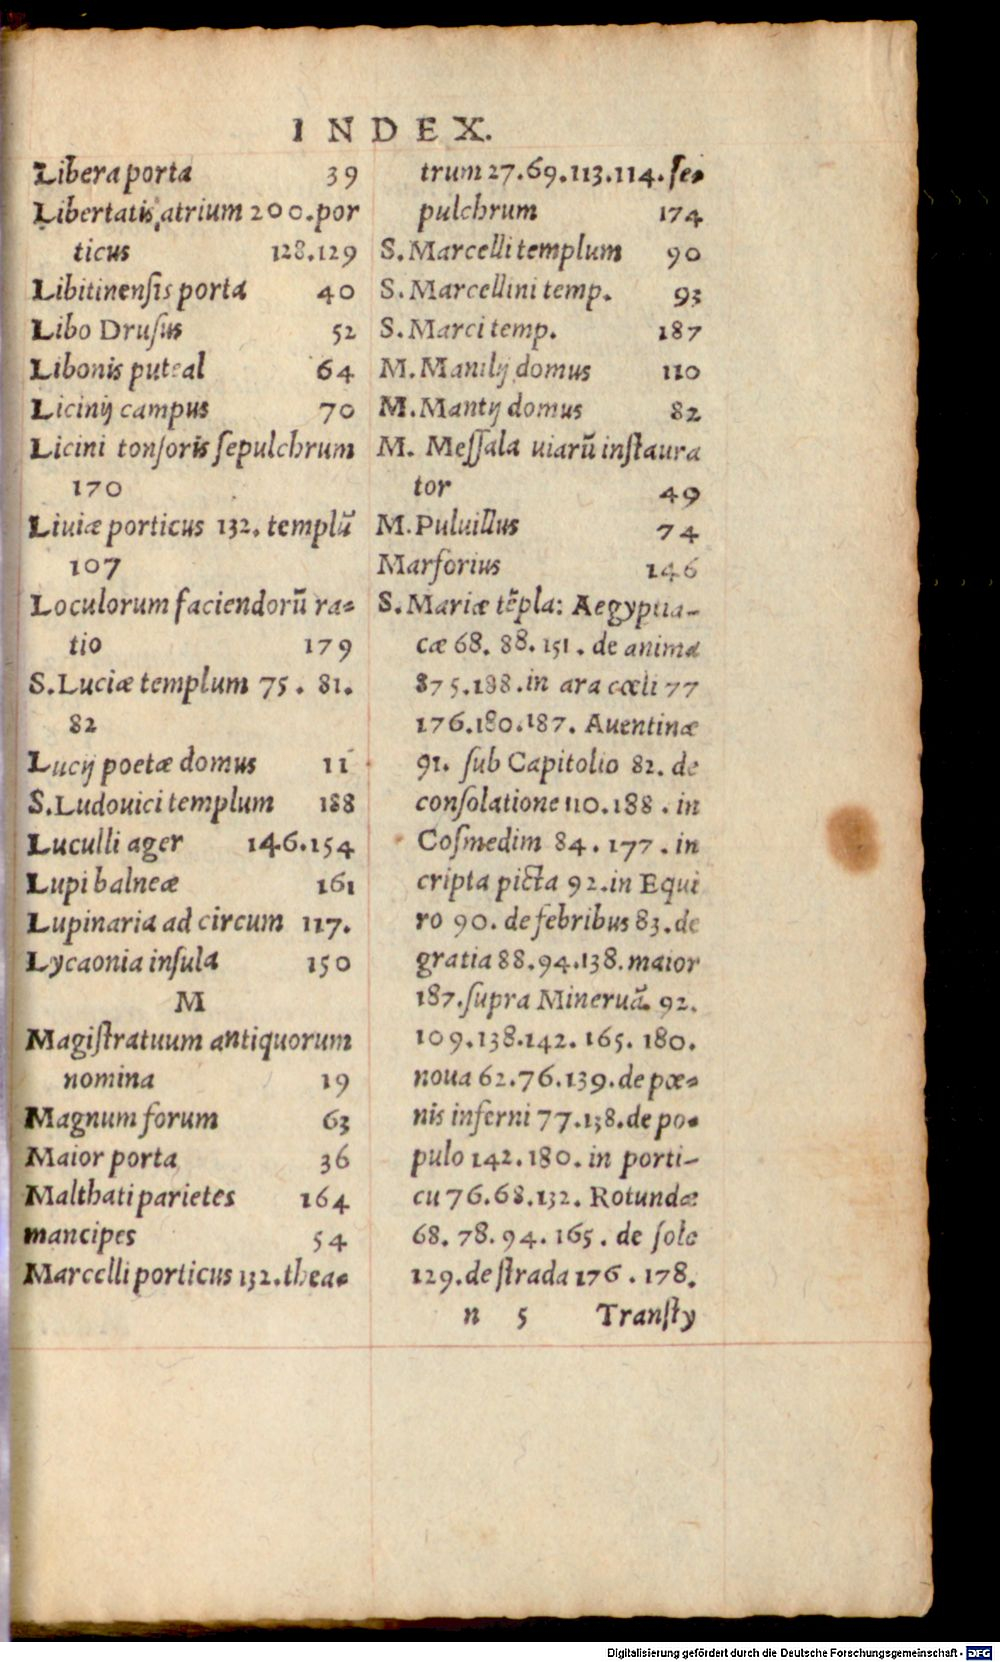 INDEX.
Libera porta 39
Libertatis atrium 200. por
ticus 128.129
Libitinensis porta 40
Libo Drusus 52
Libonis puteal 64
Licinij campus 70
Licini tonsoris sepulchrum
170
Liuiæ porticus 132. templū
107
Loculorum faciendorū ra=
tio 179
S. Luciæ templum 75. 81.
82
Lucij poetæ domus 11
S. Ludouici templum 188
Luculli ager 146.154
Lupi balneæ 161
Lupinaria ad circum 117.
Lycaonia insula 150
M
Magistratuum antiquorum
nomina 19
Magnum forum 63
Maior porta 36
Malthati parietes 164
mancipes 54
Marcelli porticus 132. thea=
trum 27.69.113.114. se=
pulchrum 174
S. Marcelli templum 90
S. Marcellini temp. 93
S. Marci temp. 187
M. Manilij domus 110
M. Mantij domus 82
M. Messala uiarū instaura
tor 49
M. Puluillus 74
Marforius 146
S. Mariæ tēpla: Aegyptia-
cæ 68. 88. 151. de anima
875.188. in ara cœli 77
176.180.187. Auentinæ
91. sub Capitolio 82. de
consolatione 110.188. in
Cosmedim 84. 177. in
cripta picta 92. in Equi
ro 90. de febribus 83. de
gratia 88.94.138. maior
187. supra Mineruā. 92.
109.138.142. 165. 180.
noua 62.76.139. de pœ=
nis inferni 77.138. de po=
pulo 142.180. in porti-
cu 76.68.132. Rotundæ
68. 78. 94. 165. de sole
129. de strada 176. 178.
n 5 Transty
Digitalisierung gefördert durch die Deutsche Forschungsgemeinschaft - DFG